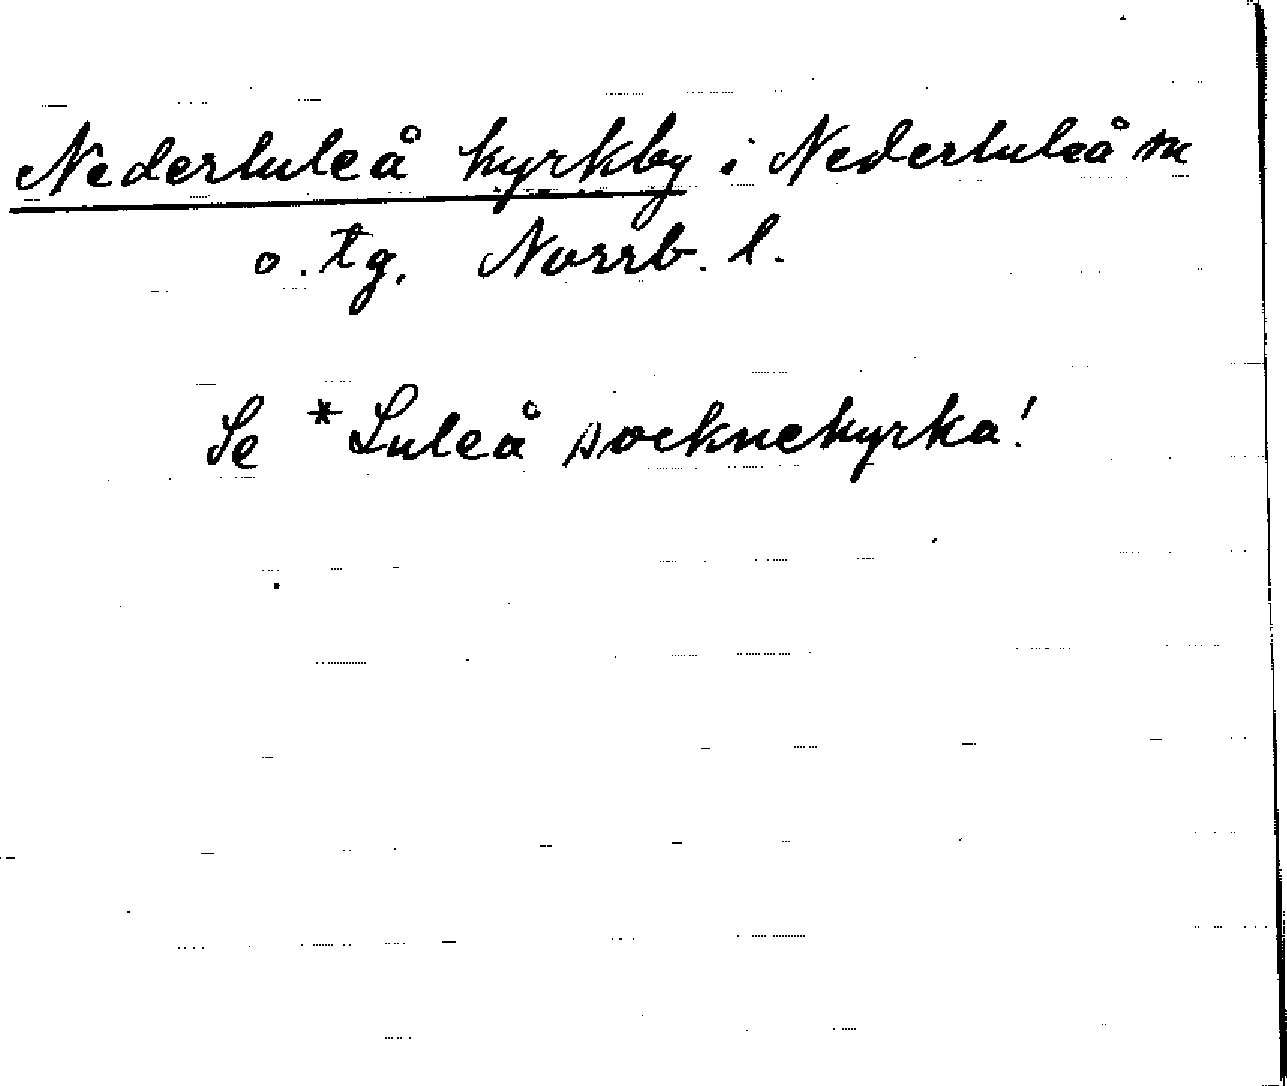 Nederluleå kyrkby i Nederluleå sn
o. tg. Norrb. l.
Se *Luleå socknekyrka!